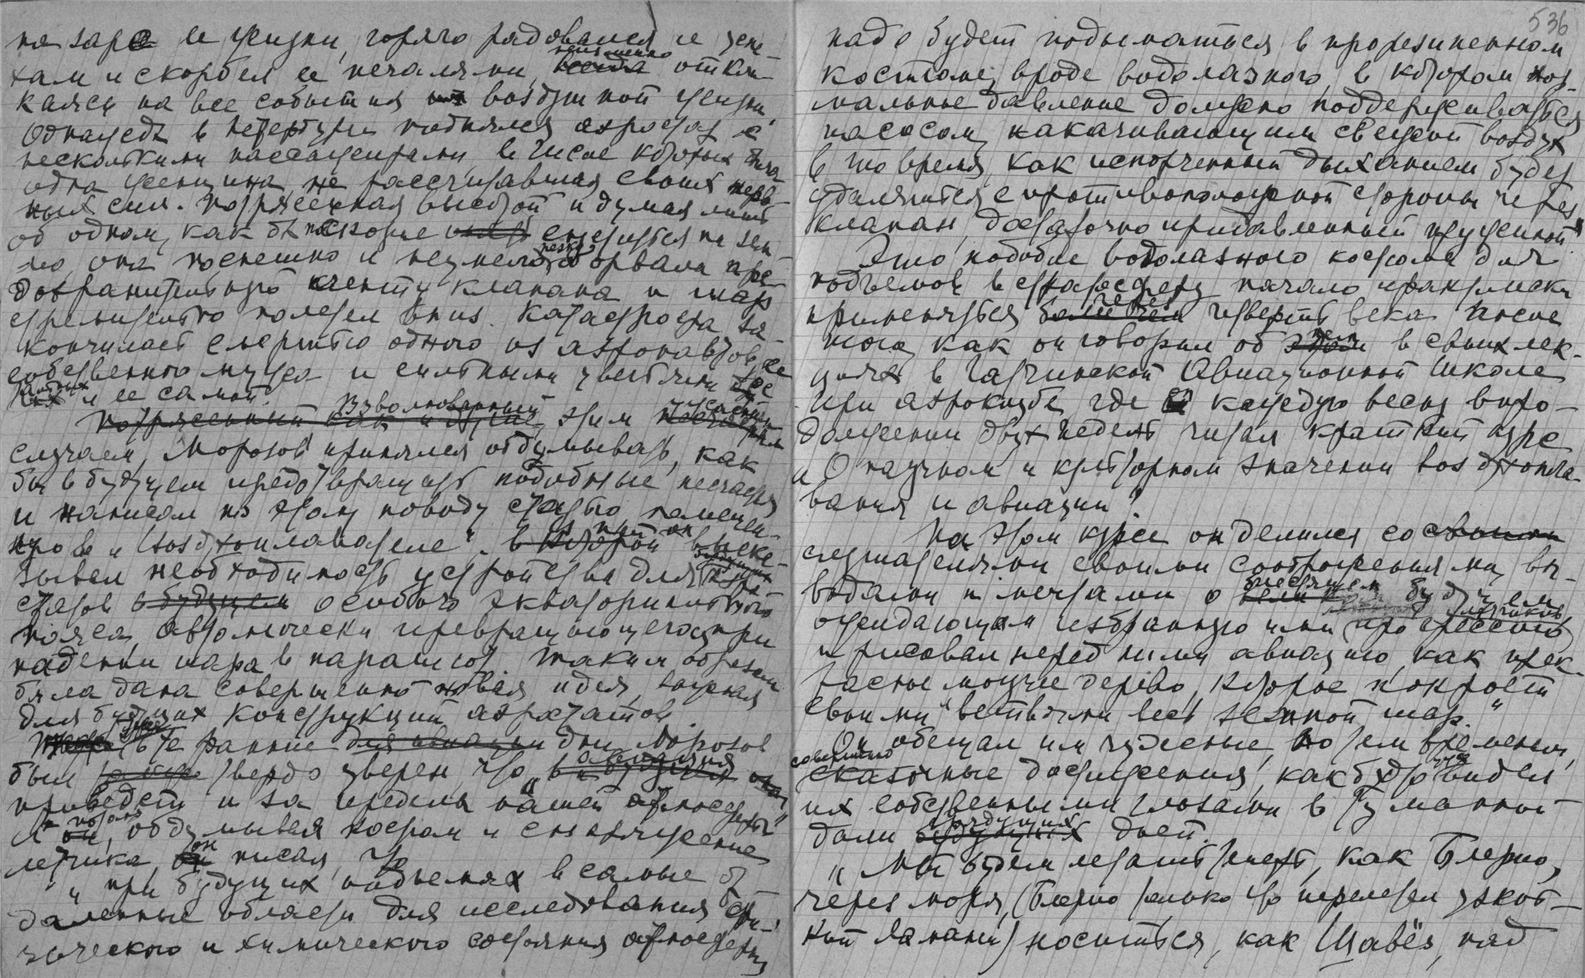 на заре ее жизни, горячо радовался ее успе-
хам и скорбел ее печалями, неизменно отзы-
каясь на все события воздушной жизни.
Однажды в Петербурге поднялся аэростат с
несколькими пассажирами в числе которых была
одна женщина, не рассчитавшая своих нерв-
ных сил. Потрясенная высотой и думая лишь
об одном, как бы поскорее снизиться на зем-
лю, она поспешно и неумело оборвала пре-
дохранительную ленту клапана и шар
стремительно полетел вниз. Катастрофа за-
кончилась смертью одного из аэронавтов, ее
собственного мужа и сильными увечьями
и ее самой.
Взволнованный этим
случаем, Морозов принялся обдумывать, как
бы в будущем предотвращать подобные несчастья
и написал по этому поводу статью
в "Воздухоплавателе", выска-
зывал необходимость устройства для
статов особого экваториального
пояса, автоматически превращающегося при
падении шара в парашют. Таким образом
была дана совершенно новая идея,
для будущих конструкций аэростатов.
В те ранние дни Морозов
был твердо уверен, что "авиация
приведет и за пределы нашей атмосферы"
И обдумывая костюм и снаряжение
летчика, он писал, что
"при будущих подъемах в самые от-
даленные области для исследования физи-
ческого и химического состояния атмосферы,
536
надо будет подыматься в прорезиненном
костюме, вроде водолазного, в котором нор-
мальное давление должно поддерживаться
насосом, накачивающим свежий воздух
в то время как испорченный дыханием будет
удаляться с противоположной стороны через
клапан, достаточно придавленный пружиной"
Это подобие водолазного костюма для
подъемов в стратосферу начало
применяться через четверть века после
того, как он говорил об нем в своих лек-
циях в Гатчинской Авиационной школе
при аэроклубе, где каждую весну в про-
должении двух недель читал краткий курс
"О научном и культурном значении воздухопла-
вания и авиации"
На этом курсе он делился со
слушателями своими соображениями, вы-
водами и мечтами о блестящем будущем
ожидающем избранную ими профессию
и рисовал перед ними авиацию, как прек-
расное могучее дерево, которое покроет
своими ветвями весь земной шар."
Он обещал им чудесные, по тем временам,
совершенно
сказочные достижения, как будто видел
их собственными глазами в туманной
дали грядущих дней.
"Мы будем летать теперь, как Блерио,
через моря, (Блерио только что перелетел
Ламанш) носиться, как Шавёз, над